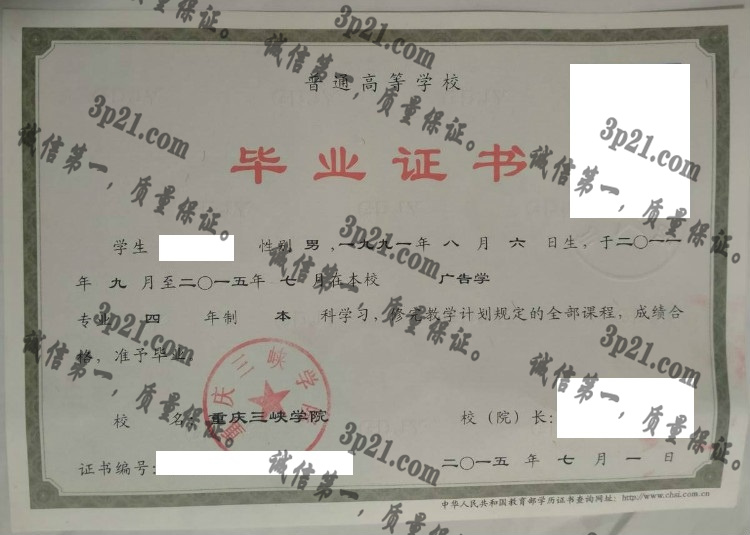 普通高等学校
毕业证书
学生 性别 男 , 一九九一年 八 月 六 日生, 于二〇一一
年 九 月至二〇一五年 七 月在本校 广告学
专业 四 年制 本 科学习, 修完教学计划规定的全部课程, 成绩合
格, 准予毕业
校 名: 重庆三峡学院
校（院）长:
证书编号:
二〇一五 年 七 月 一 日
中华人民共和国教育部学历证书查询网址: http://www.chsi.com.cn
重庆三峡学
3p21.com
诚信第一，质量保证。
3p21.com
诚信第一，质量保证。
3p21.com
诚信第一，质量保证。
3p21.com
诚信第一，质量保证。
3p21.com
诚信第一，质量保证。
3p21.com
诚信第一，质量保证。
3p21.com
诚信第一，质量
3p21.com
诚信第一，质量
质量保证。